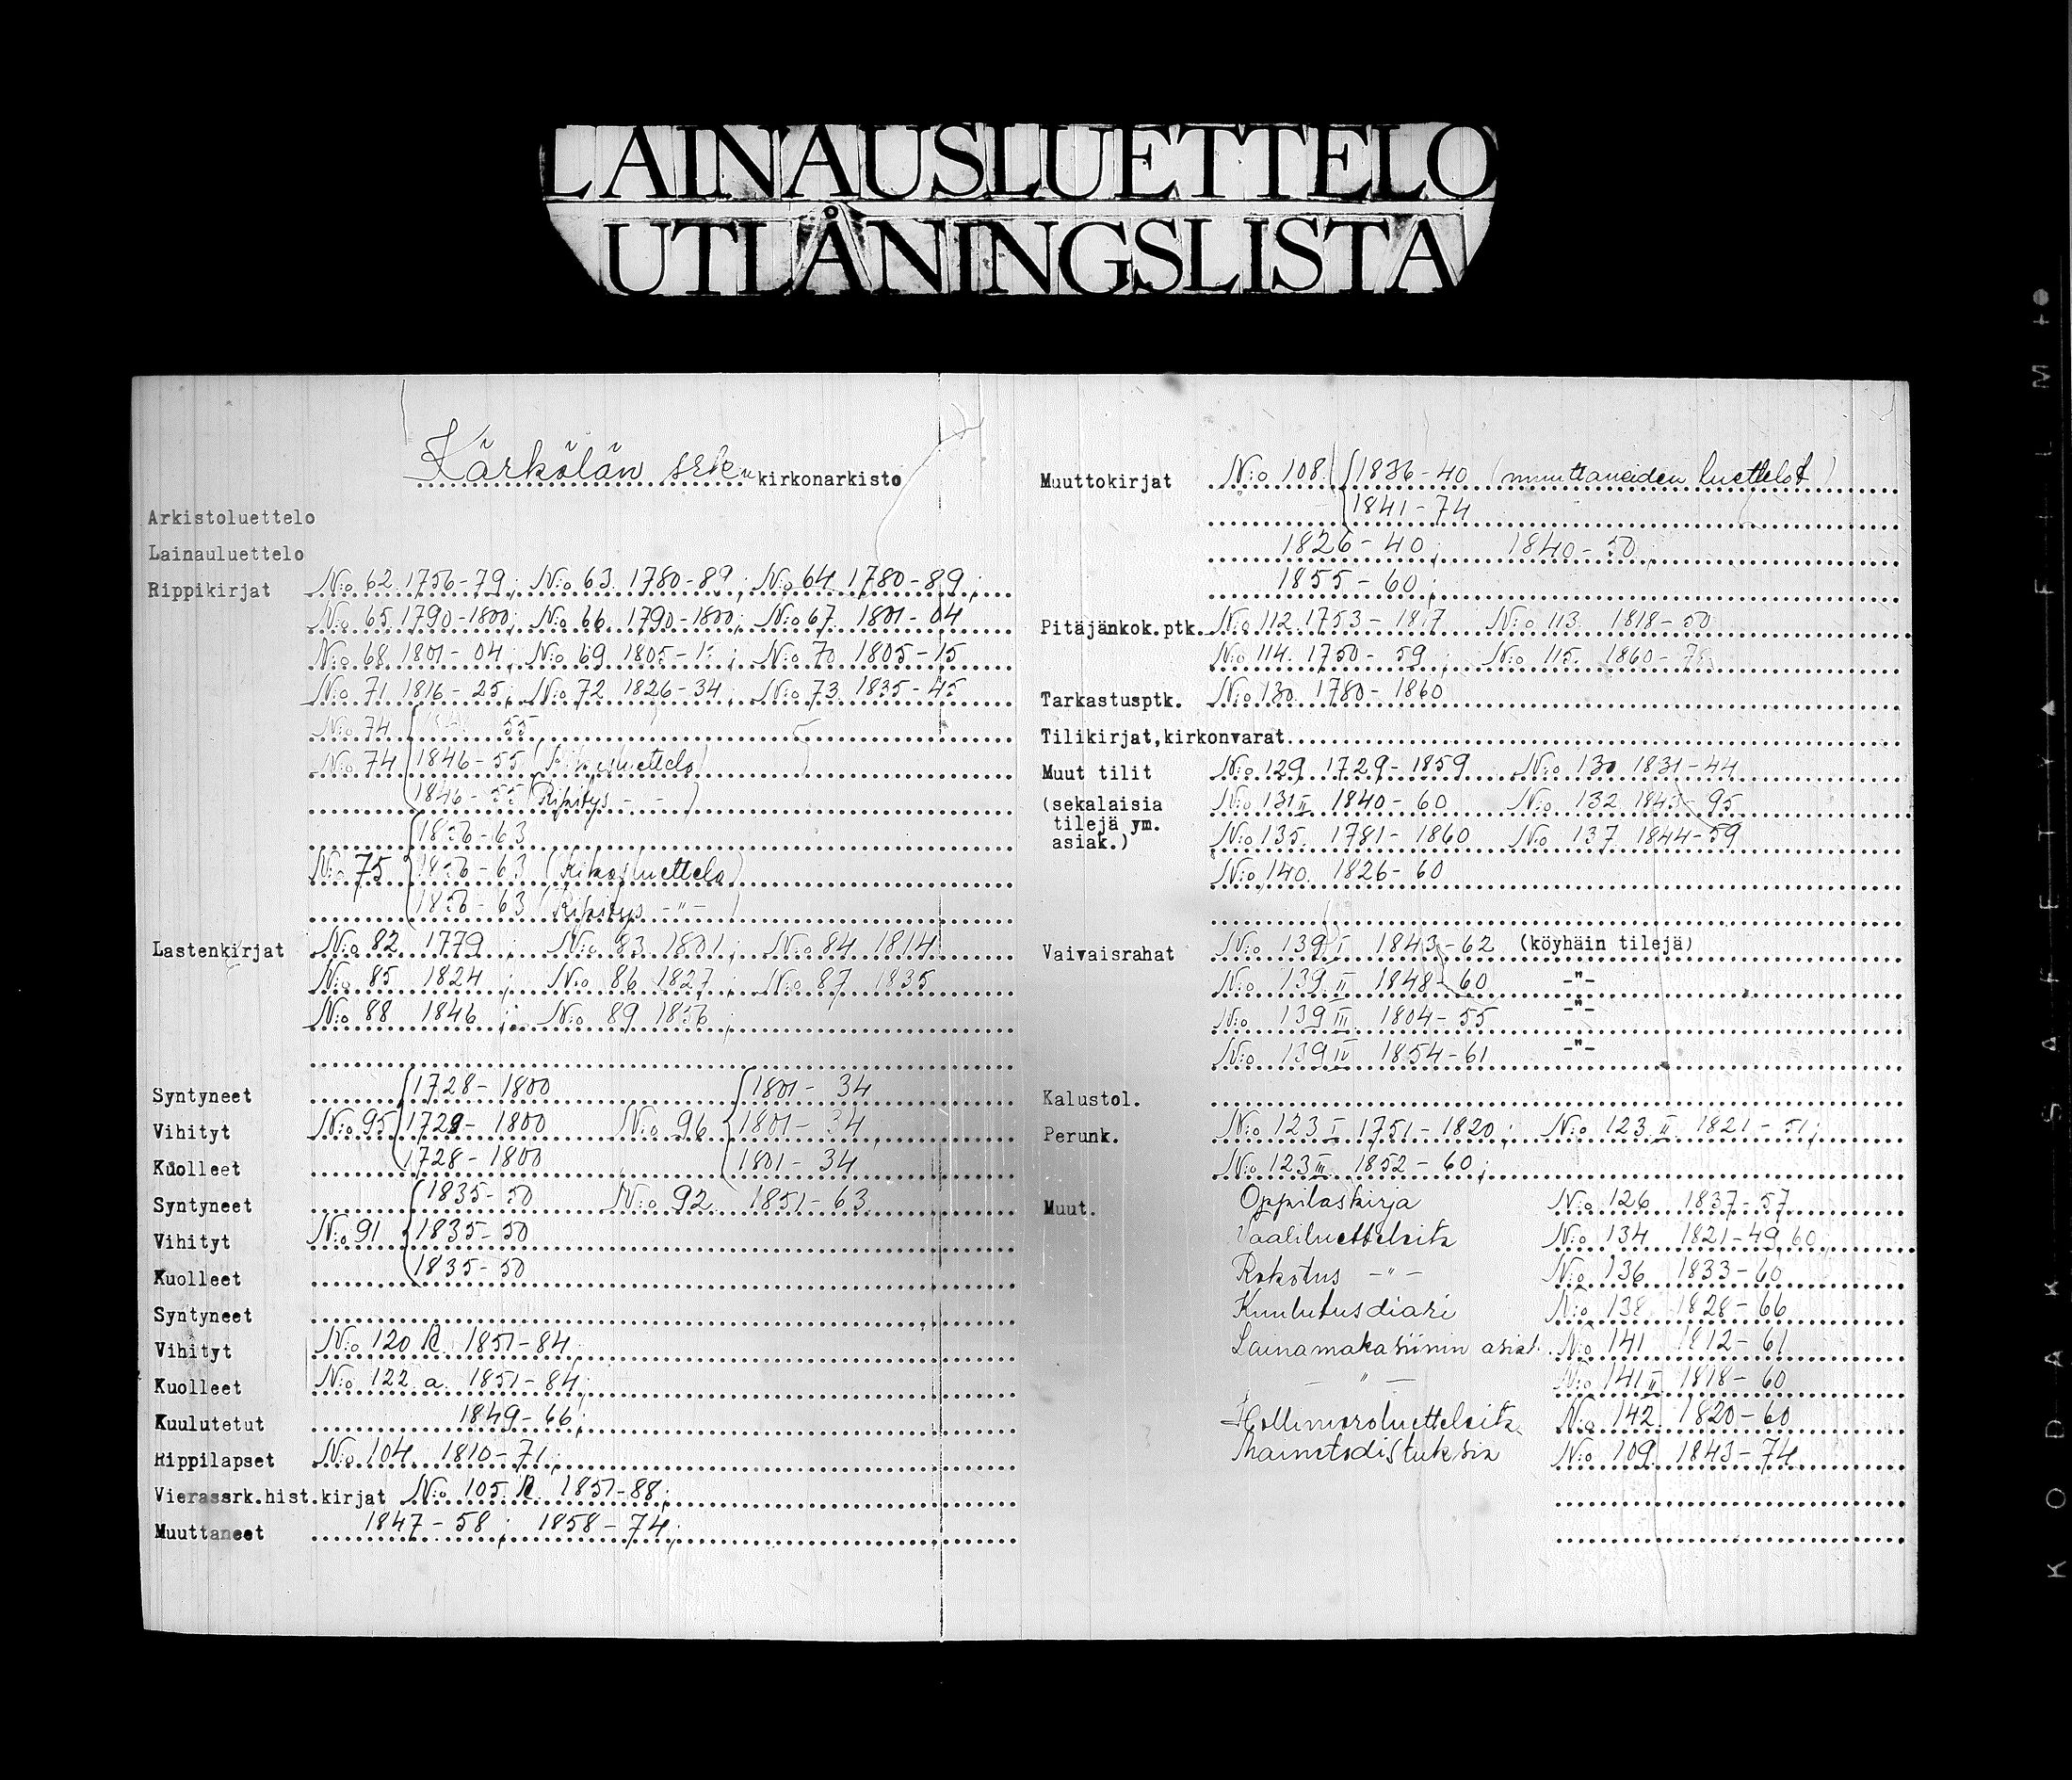 LAINAUSLUETTELO
UTLÅNINGSLISTA
Kärkölän srk:n kirkonarkisto
Arkistoluettelo
Lainauluettelo
Rippikirjat N:o 62. 1756-79; N:o 63. 1780-89; N:o 64. 1780-89;
N:o 65. 1790-1800; N:o 66. 1790-1800; N:o 67. 1801-04
N:o 68. 1801-04; N:o 69. 1805-15; N:o 70. 1805-15
N:o 71. 1816-25; N:o 72. 1826-34; N:o 73. 1835-45
N:o 74 55
N:o 74 1846-55 (Rikosluettelo)
1846-55 (Ripitys - - )
1856-63
N:o 75 1856-63 (Rikosluettelo)
1856-63 (Ripitys -"- )
Lastenkirjat N:o 82. 1779; N:o 83. 1801; N:o 84. 1814
N:o 85 1824; N:o 86 1827; N:o 87 1835
N:o 88 1846; N:o 89 1856;
Syntyneet 1728-1800 1801-34
Vihityt N:o 95 1729-1800 N:o 96 1801-34
Kuolleet 1728-1800 1801-34
Syntyneet 1835-50 N:o 92. 1851-63
Vihityt N:o 91 1835-50
Kuolleet 1835-50
Syntyneet
Vihityt N:o 120 R. 1851-84
Kuolleet N:o 122. a. 1851-84;
Kuulutetut 1849-66;
Rippilapset N:o 104. 1810-71;
Vierassrk.hist.kirjat N:o 105. R. 1851-88;
Muuttaneet 1847-58; 1858-74;
Muuttokirjat N:o 108. 1836-40 (muuttaneiden luettelot)
1841-74
1826-40; 1840-50;
1855-60;
Pitäjänkok.ptk. N:o 112. 1753-1817 N:o 113. 1818-50
N:o 114. 1750-59; N:o 115. 1860-
Tarkastusptk. N:o 130. 1780-1860
Tilikirjat,kirkonvarat
Muut tilit N:o 129. 1729-1859 N:o 130 1831-44
(sekalaisia N:o 131 II 1840-60 N:o 132. 1845-95
tilejä ym.
asiak.) N:o 135. 1781-1860 N:o 137 1844-59
N:o 140. 1826-60
Vaivaisrahat N:o 139 I 1843-62 (köyhäin tilejä)
N:o 139 II 1848-60 -"-
N:o 139 III 1804-55 "
N:o 139 IV 1854-61 -"-
Kalustol.
Perunk. N:o 123 I 1751-1820; N:o 123 II 1821-51;
N:o 123 III 1852-60;
Muut. Oppilaskirja N:o 126 1837-57
Vaaliluetteloita N:o 134 1821-49,60
Rokotus -"- N:o 136 1833-60
Kuulutusdiari N:o 138 1828-66
Lainamakasiinin asiat. N:o 141 1812-61
- " - N:o 141 II 1818-60
N:o 142. 1820-60
Mainetodistuksia N:o 109. 1843-74
KODAK SAFETY FILM